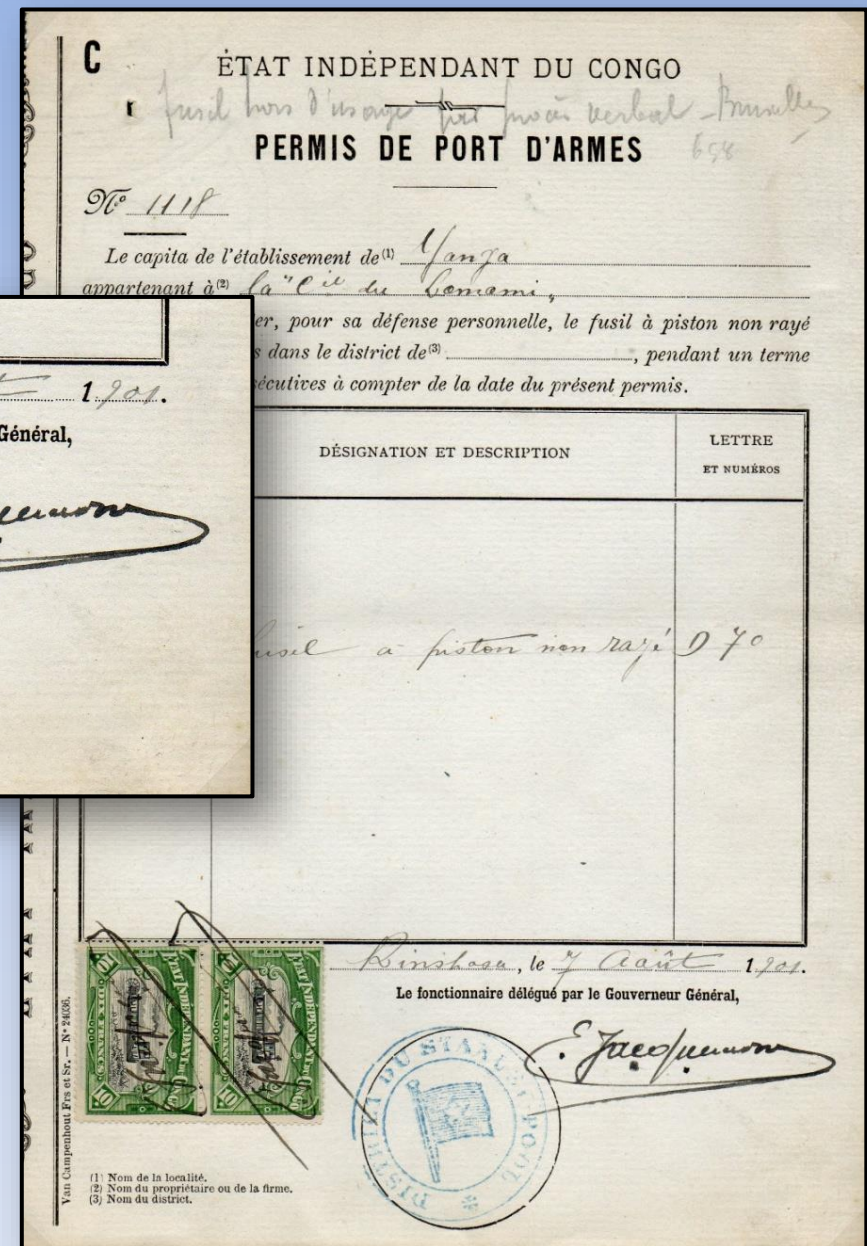 C
ÉTAT INDÉPENDANT DU CONGO
fusil hors d'usage par procès verbal - Bruxelles
658
PERMIS DE PORT D'ARMES
No 1118
Le capita de l'établissement de (1) Yanga
appartenant à (2) la "Cie du Lomami"
er, pour sa défense personnelle, le fusil à piston non rayé
s dans le district de (3) , pendant un terme
écutives à compter de la date du présent permis.
DÉSIGNATION ET DESCRIPTION
LETTRE
ET NUMÉROS
usil à piston non rayé D 70
1901.
Général,
Kinshasa, le 7 Août 1901.
Le fonctionnaire délégué par le Gouverneur Général,
E. Jacquemin
ÉTAT INDÉPENDANT DU CONGO
10 DIX FRANCS 10
ÉTAT INDÉPENDANT DU CONGO
10 DIX FRANCS 10
DISTRICT DU STANLEY-POOL
Van Campenhout Frs et Sr. — No 24036.
(1) Nom de la localité.
(2) Nom du propriétaire ou de la firme.
(3) Nom du district.